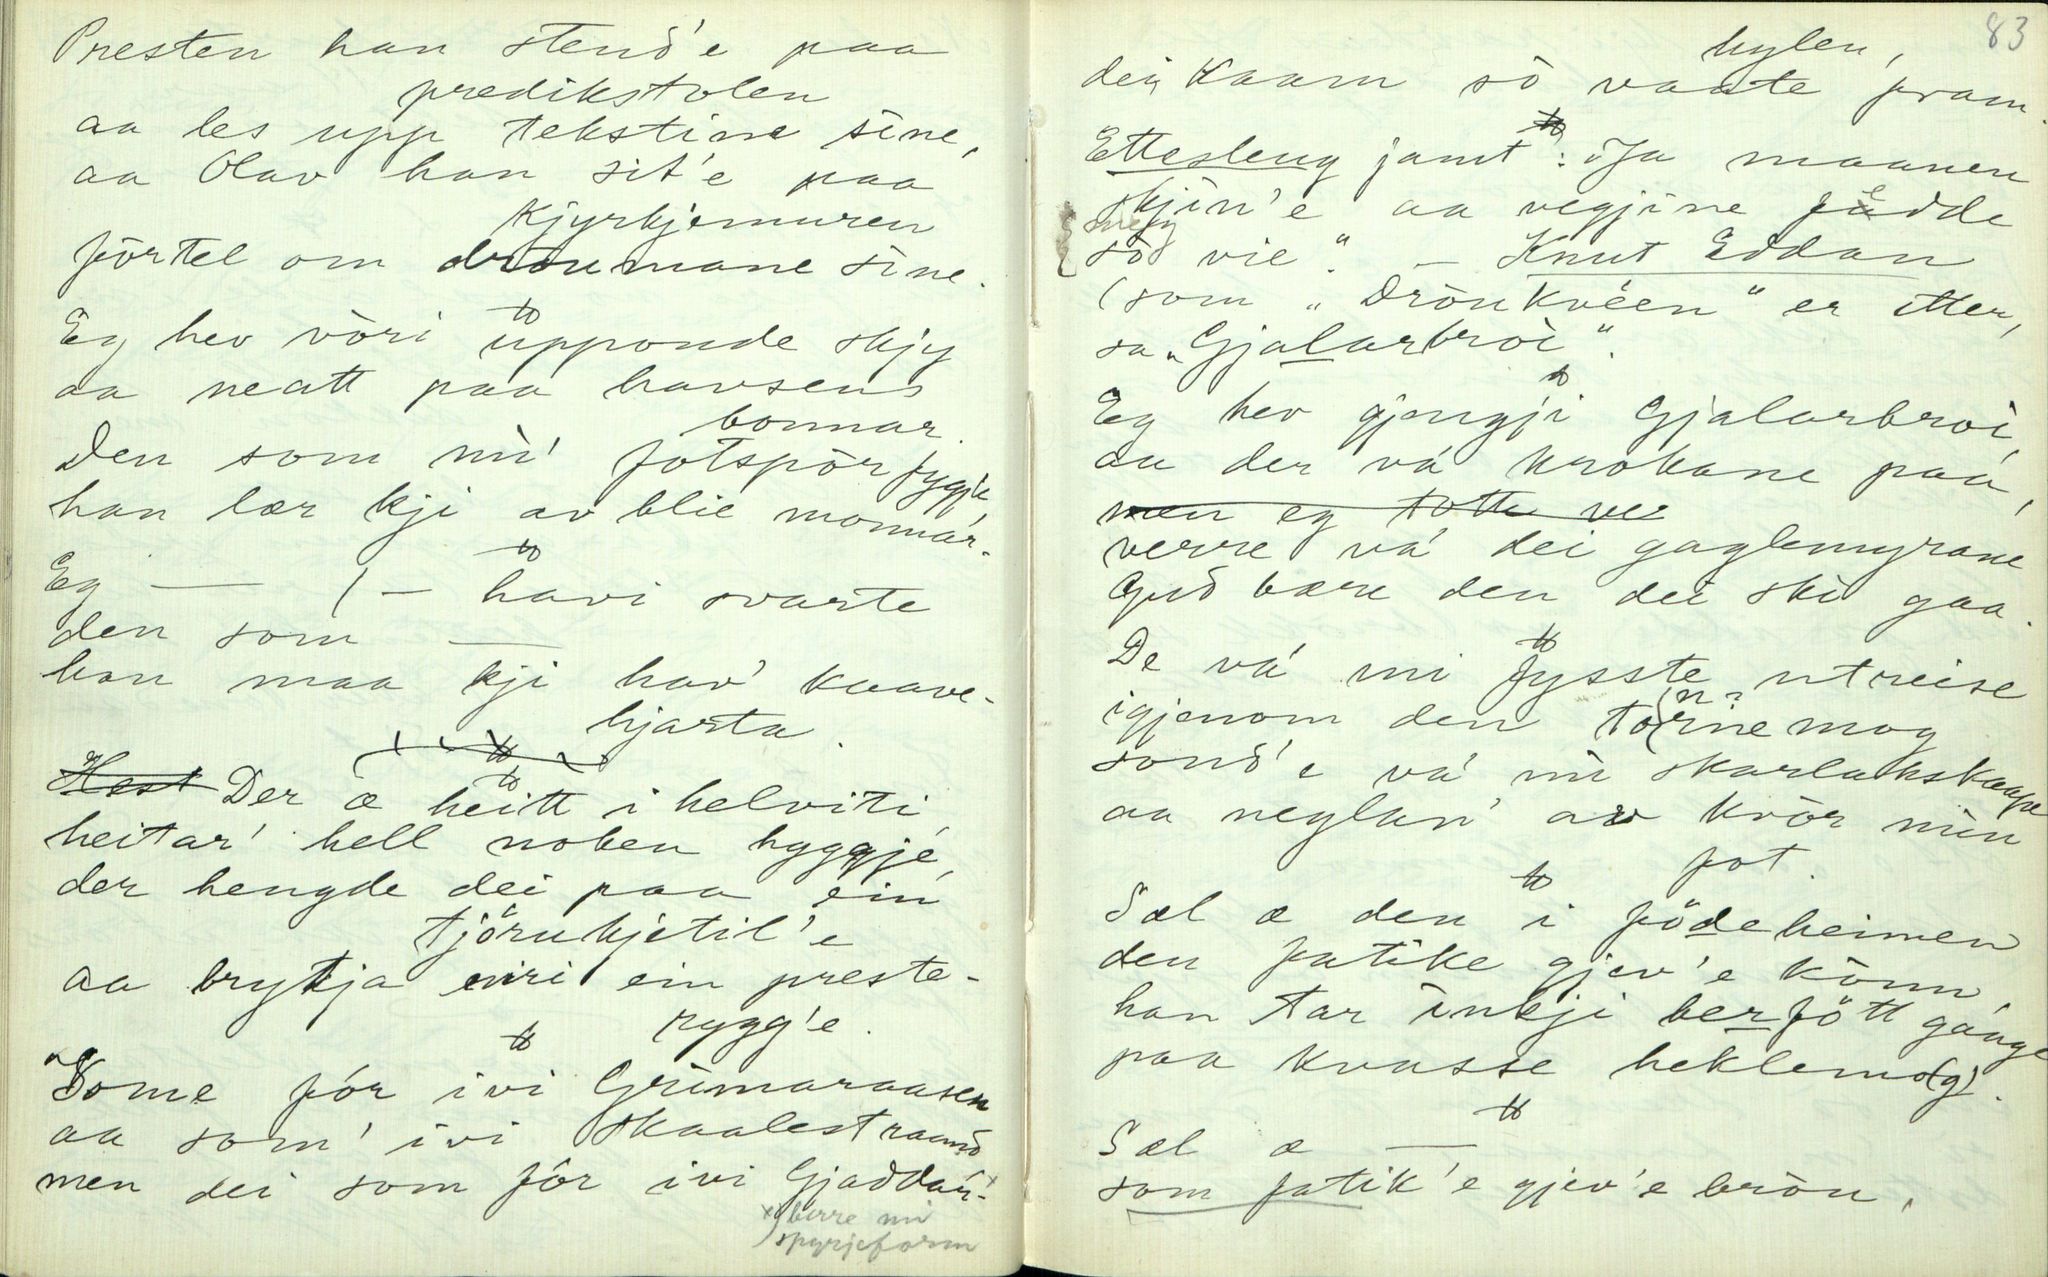 Presten han stend'e paa
predikstolen
aa les upp tekstine sine,
aa Olav han sit'e paa
Kjyrkjemuren
förtel om draumane sine.
Eg hev vòri upponde skjy
aa neatt paa havsens
bonnar.
Den som mi' fotspòr fygji
han lær kji av blie monnár.
Eg — / — havi svarte
den som —
han maa kji hav' kaave-
hjarta.
Hest Der æ heitt i helviti,
heitar' hell noken hyggjé,
der hengde dei paa ein
tjöruhjetil'e
aa brytja niri ein preste-
rygg'e.
Some fór ivi Grimaraasen
aa som' ivi Skaalestrand
men dei som fór ivi Gjaddar-x
x) berre mi
spyrjeform
83
hylen,
dei Kaam sò vaate fram.
Ettesleng jamt: "Ja maanen
skjin'e aa vegjine fadde
sneg
sò vie". — Knut Eddan
(som "Dròukvéen" er etter,
sa "Gjalarbroi".
Eg hev gjengji Gjalarbroi,
aa der vá krokane paá,
men eg totte ver
verre vá dei gaglemyrane
Gud bære den dei ski gaa.
De vá mi fysste utreise
igjenom den tornemog
(n?
sond'e vá mi skarlakskaape
aa neglan' av kvòr min
fot.
Sæl æ den i födeheimen
den fatike gjev'e kònn,
han tar inkji berfött gánge
paa kvasse heklemo(g).
Sæl æ —
som fatik'e gjev'e bròu,